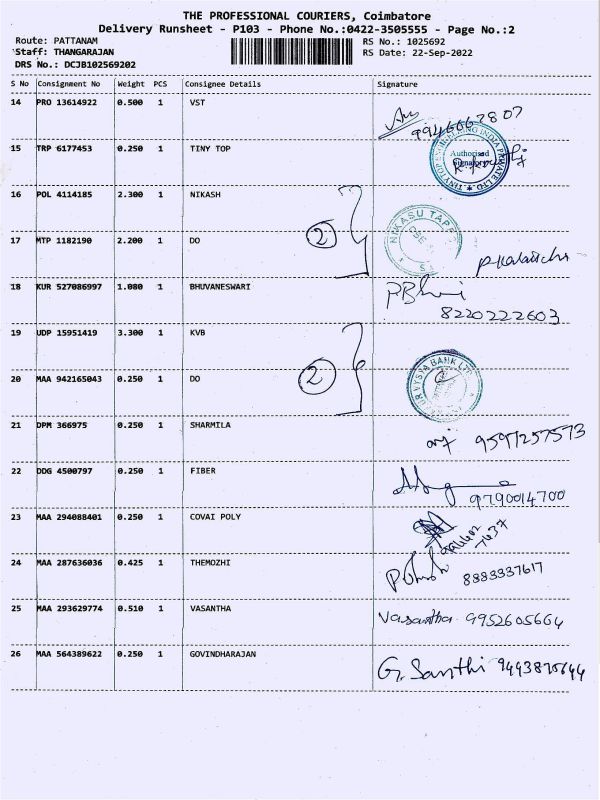 THE PROFESSIONAL COURIERS, Coimbatore
Delivery Runsheet - P103 - Phone No.:0422-3505555 - Page No.:2
Route: PATTANAM
RS No.: 1025692
Staff: THANGARAJAN
RS Date: 22-Sep-2022
DRS No.: DCJB102569202
S No Consignment No Weight PCS Consignee Details Signature
14 PRO 13614922 0.500 1 VST
9946667807
15 TRP 6177453 0.250 1 TINY TOP
TINY TOP ENGINEERING INDIA PRIVATE LTD
Authorised
Signatory
16 POL 4114185 2.300 1 NIKASH
2
NIKASU
17 MTP 1182190 2.200 1 DO
18 KUR 527086997 1.080 1 BHUVANESWARI
8220222603
19 UDP 15951419 3.300 1 KVB
VYSYA BANK LTD
20 MAA 942165043 0.250 1 DO
2
21 DPM 366975 0.250 1 SHARMILA
9597257573
22 DDG 4500797 0.250 1 FIBER
9790014700
23 MAA 294088401 0.250 1 COVAI POLY
24 MAA 287636036 0.425 1 THEMOZHI
8883337617
25 MAA 293629774 0.510 1 VASANTHA
Vasantha 9952605664
26 MAA 564389622 0.250 1 GOVINDHARAJAN
G. Santhi